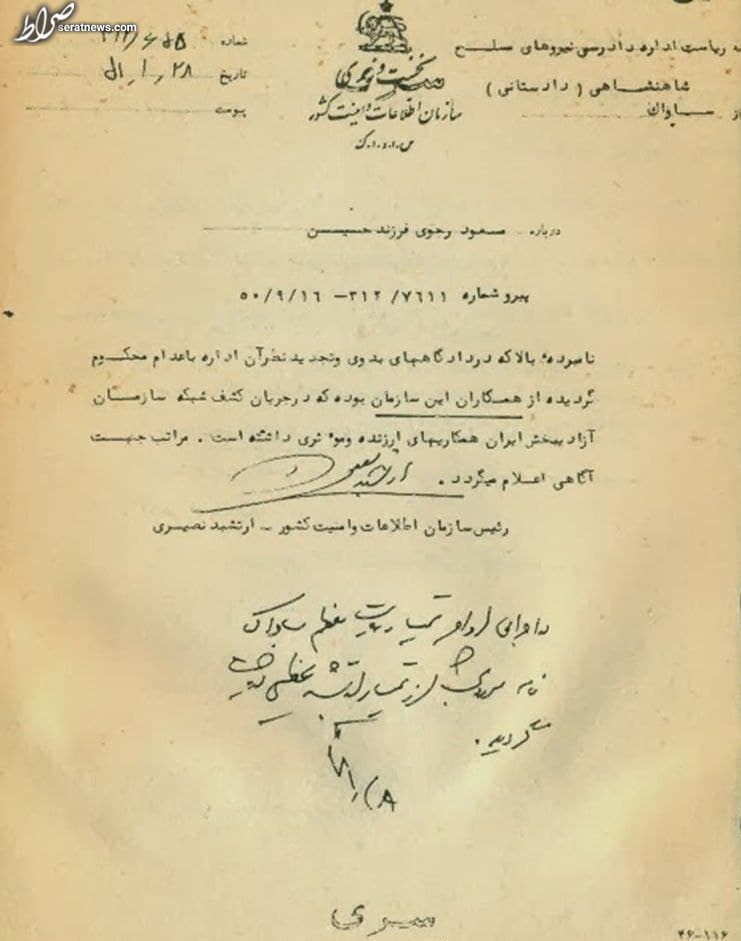 صراط
seratnews.com
به ریاست اداره دادرسی نیروهای مسلح
شاهنشاهی (دادستانی)
از ساواک
نخست وزیری
سازمان اطلاعات و امنیت کشور
س.ا.و.ا.ک
شماره
تاریخ ۲۸
پیوست
درباره مسعود رجوی فرزند حسین
پیرو شماره ۳۱۲/۷۶۱۱ – ۵۰/۹/۱۶
نامبرده بالا که در دادگاههای بدوی و تجدید نظر آن اداره باعدام محکوم
گردیده از همکاران این سازمان بوده که در جریان کشف شبکه سازمان
آزادیبخش ایران همکاریهای ارزنده و موثری داشته است . مراتب جهت
آگاهی اعلام میگردد .
رئیس سازمان اطلاعات و امنیت کشور – ارتشبد نصیری
اوامر تیمسار ریاست معظم ساواک
گردید .
سری
۴۶-۱۱۶